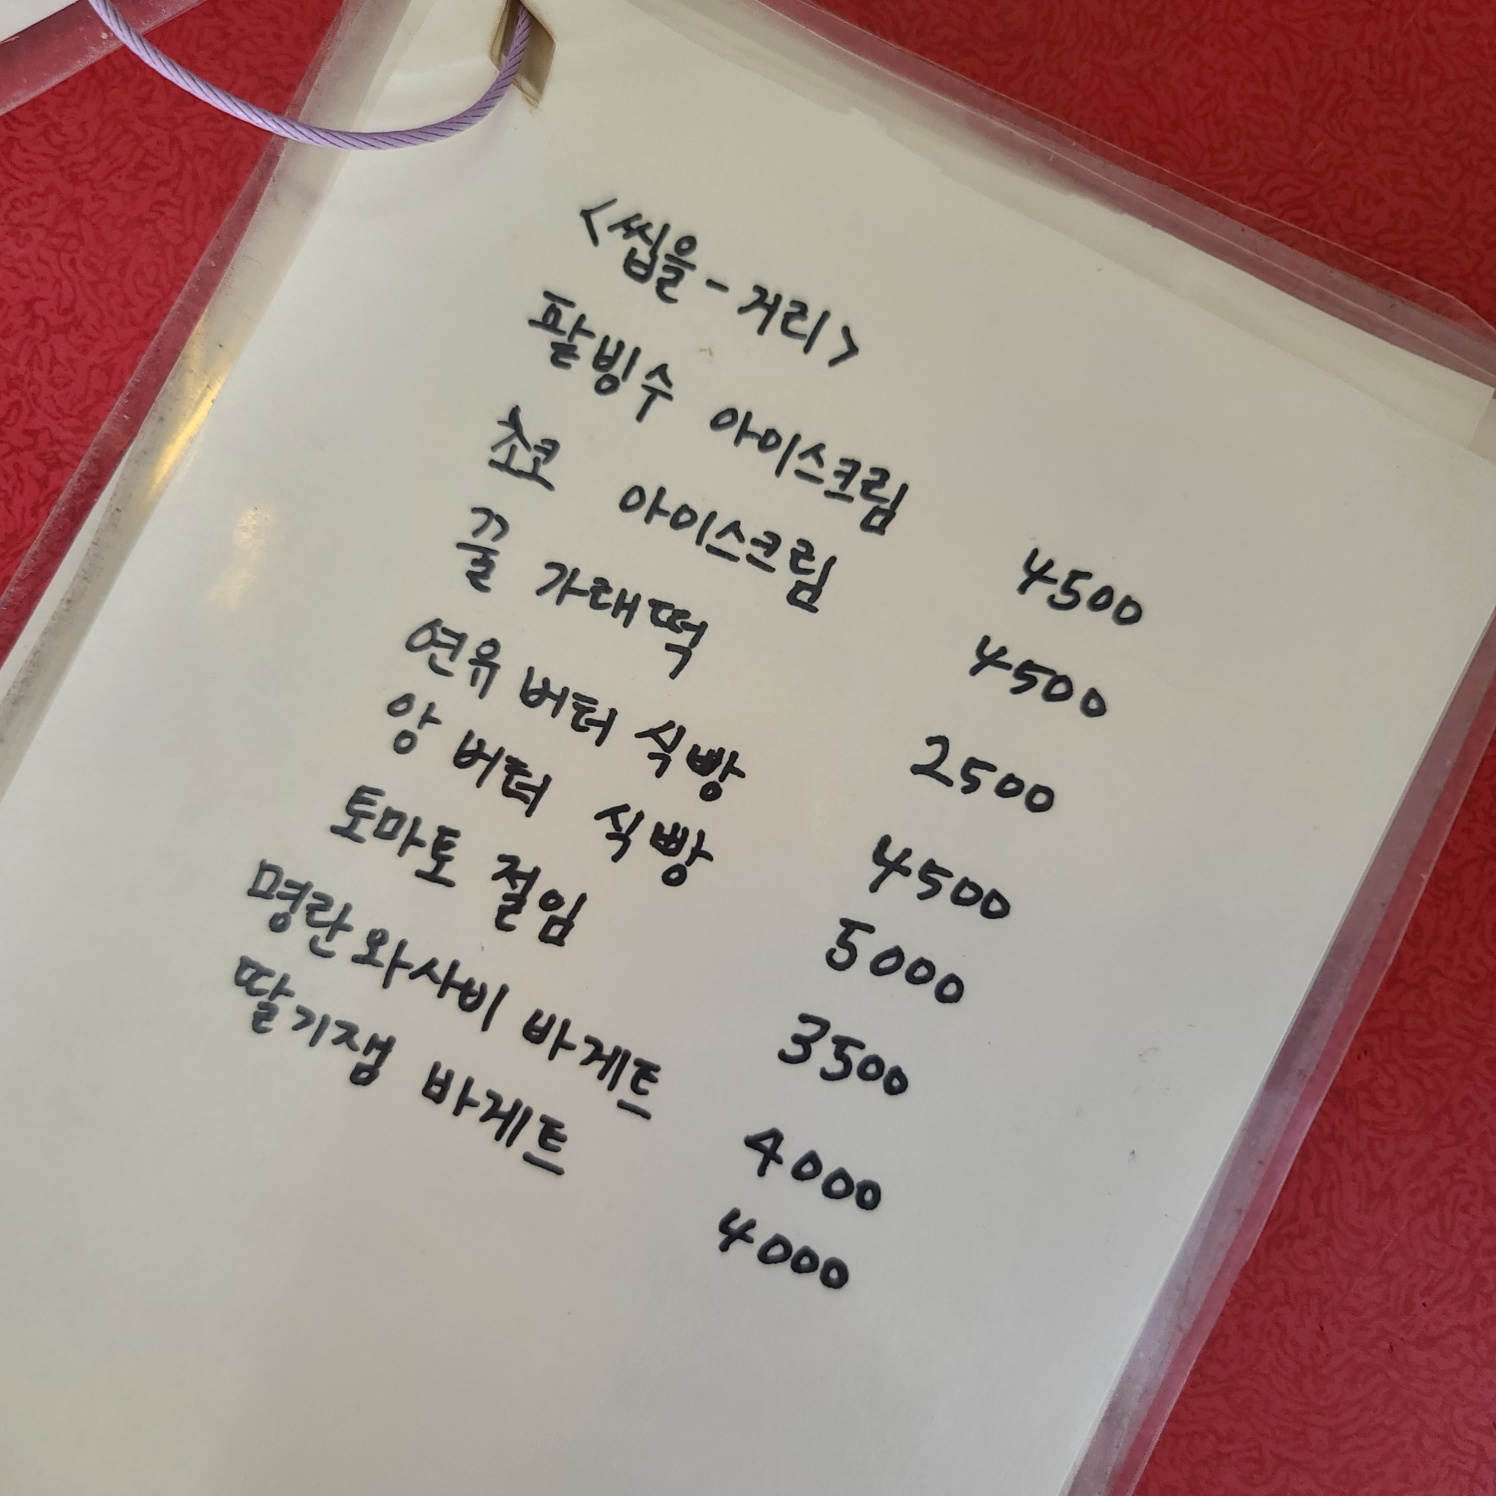 <씹을-거리>
팥빙수 아이스크림 4500
쵸코 아이스크림 4500
꿀 가래떡 2500
연유 버터 식빵 4500
앙 버터 식빵 5000
토마토 절임 3500
명란 와사비 바게트 4000
딸기잼 바게트 4000